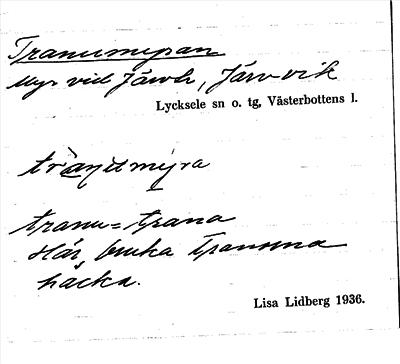 Tranumyran
Myr vid Järvb, Järvvik
Lycksele sn o. tg, Västerbottens l.
tranumyra
tranu = trana
Här bruka tranorna
häcka.
Lisa Lidberg 1936.